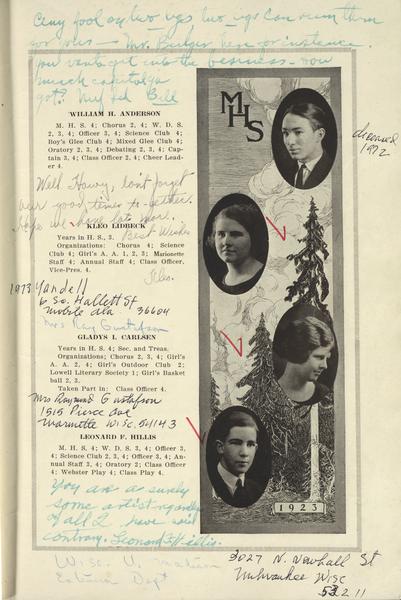 Any fool on two legs
for years — Mr. Badger here for instance.
You wanta get into the business - how
much capital ya
got? Bill
MHS
deceased
1972
WILLIAM H. ANDERSON
M. H. S. 4; Chorus 2, 4; W. D. S.
2, 3, 4; Officer 3, 4; Science Club 4;
Boy's Glee Club 4; Mixed Glee Club 4;
Oratory 2, 3, 4; Debating 2, 3, 4; Cap-
tain 3, 4; Class Officer 2, 4; Cheer Lead-
er 4.
Well Howy, don't forget
our good times to-gether.
Hope we have lots more.
KLEO LIDBECK
Best Wishes
Years in H. S., 3.
Organizations: Chorus 4; Science
Club 4; Girl's A. A. 1, 2, 3; Marionette
Staff 4; Annual Staff 4; Class Officer,
Vice-Pres. 4.
Kleo.
1973 Yandell
6 So. Hallett St
Mobile Ala. 36604
Mrs Ray Gustafson
GLADYS I. CARLSEN
Years in H. S. 4; Sec. and Treas.
Organizations; Chorus 2, 3, 4; Girl's
A. A. 2, 4; Girl's Outdoor Club 2;
Lowell Literary Society 1; Girl's Basket
ball 2, 3.
Taken Part in: Class Officer 4.
Mrs Raymond G Gustafson
1515 Pierce Ave
Marinette Wisc. 54143
LEONARD F. HILLIS
M. H. S. 4; W. D. S. 3, 4; Officer 3,
4; Science Club 2, 3, 4; Officer 3, 4; An-
nual Staff 3, 4; Oratory 2; Class Officer
4; Webster Play 4; Class Play 4.
1923
You are a surely
some artist
of all I have said
contrary. Leonard F. Hillis.
Wisc. U. Madison
Dept
3027 N. Newhall St
Milwaukee Wisc
53211